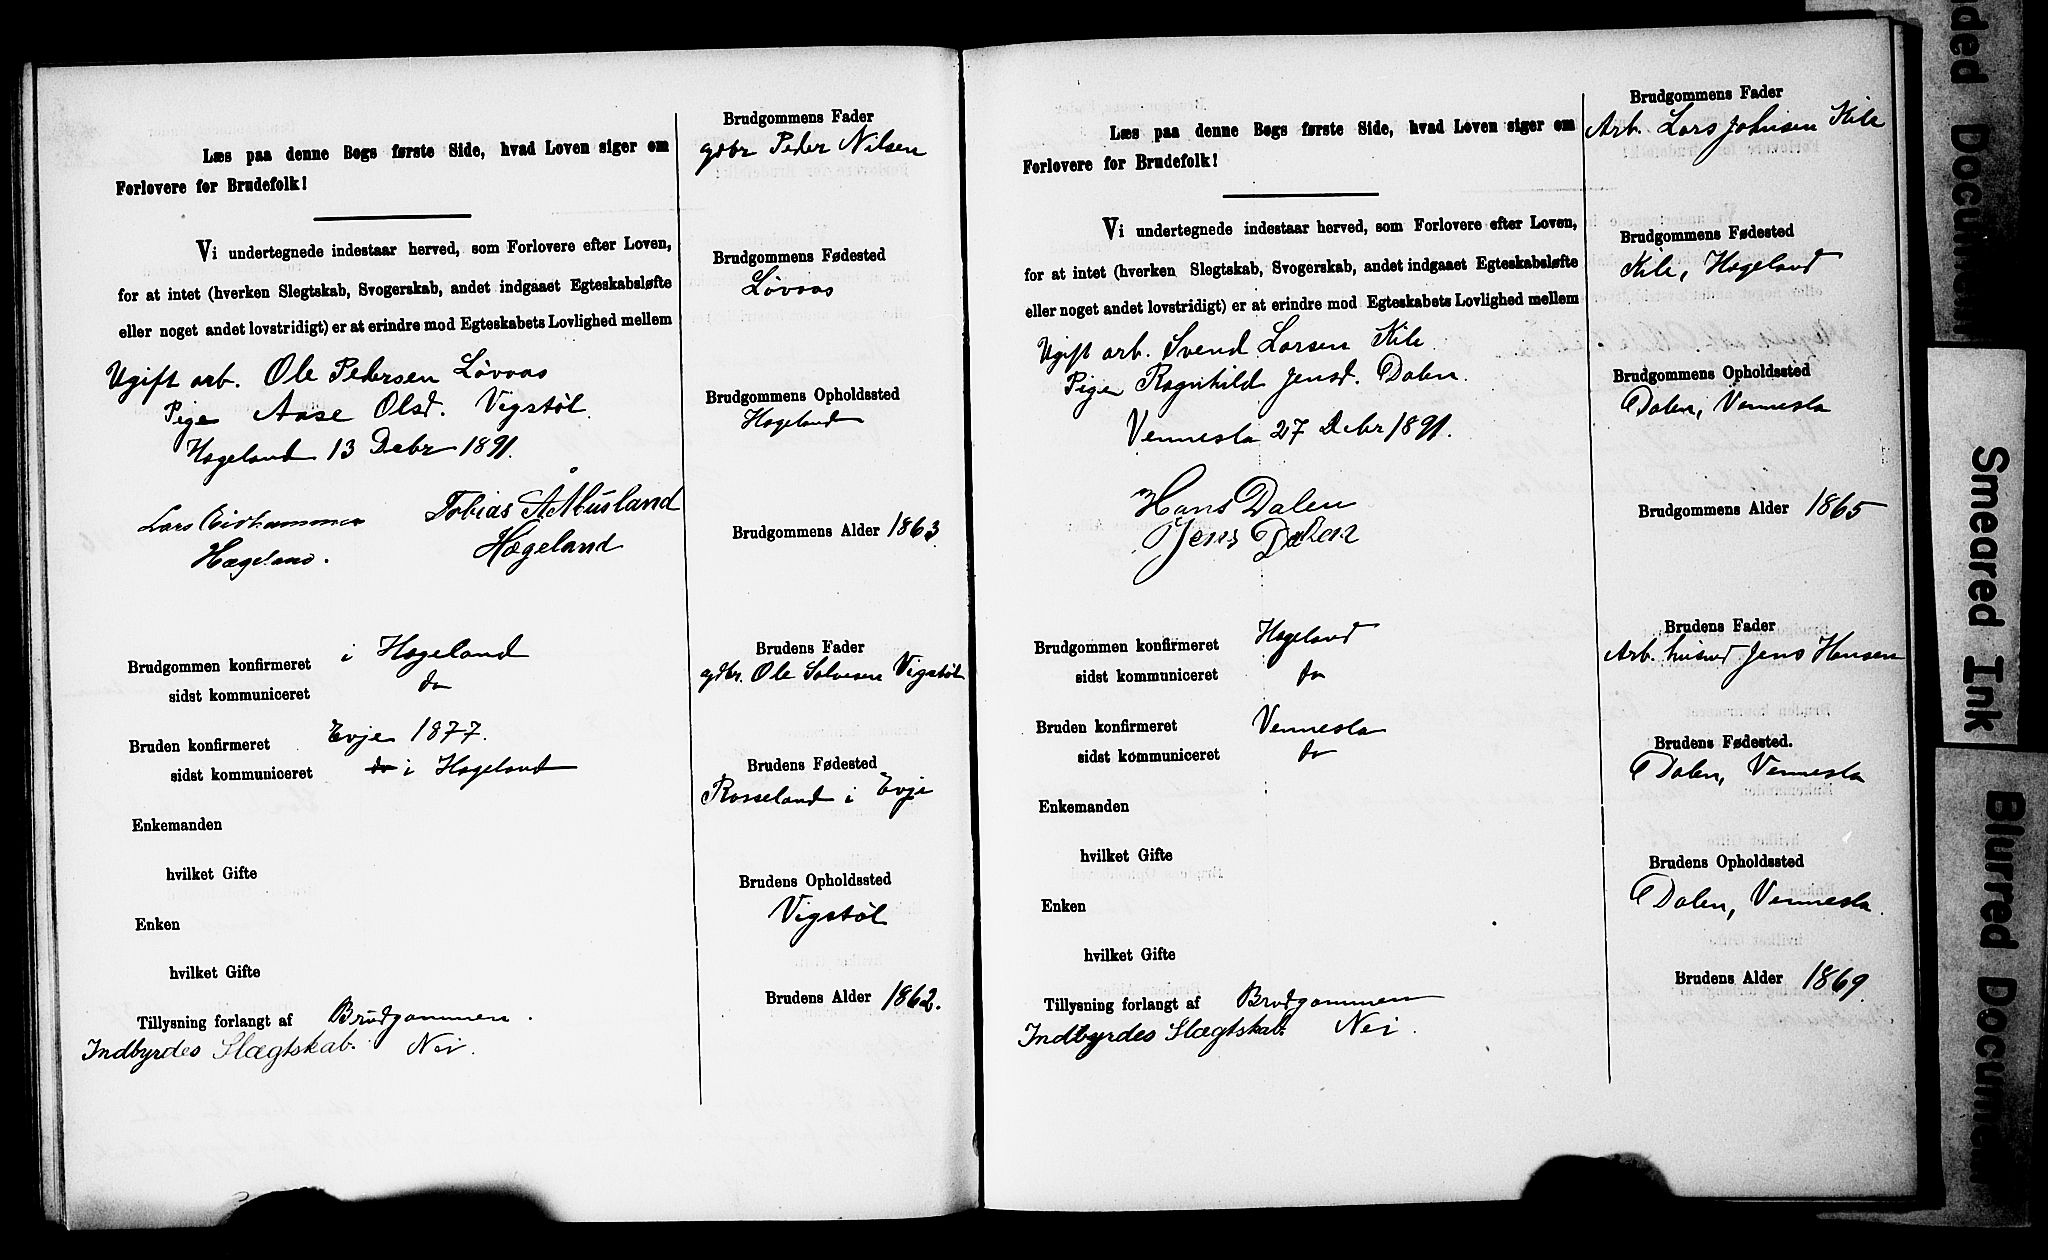 Læs paa denne Bogs første Side, hvad Loven siger om
Forlovere for Brudefolk!
Vi undertegnede indestaar herved, som Forlovere efter Loven,
for at intet (hverken Slegtskab, Svogerskab, andet indgaaet Egteskabsløfte
eller noget andet lovstridigt) er at erindre mod Egteskabets Lovlighed mellem
Ugift arb. Ole Pedersen Løvaas
Pige Aase Olsd. Vigstøl
Hægeland 13 Debr 1891.
Lars Eidhammer Tobias Å Musland
Hægeland. Hægeland
Brudgommen konfirmeret i Hægeland
sidst kommuniceret do
Bruden konfirmeret Evje 1877.
sidst kommuniceret do i Hægeland
Enkemanden
hvilket Gifte
Enken
hvilket Gifte
Tillysning forlangt af Brudgommen.
Indbyrdes Slægtskab. Nei.
Brudgommens Fader
gdbr Peder Nilsen
Brudgommens Fødested
Løvaas
Brudgommens Opholdssted
Hægeland
Brudgommens Alder 1863
Brudens Fader
gdbr. Ole Salvesen Vigstøl
Brudens Fødested
Rosseland i Evje
Brudens Opholdssted
Vigstøl
Brudens Alder 1862.
Læs paa denne Bogs første Side, hvad Loven siger om
Forlovere for Brudefolk!
Vi undertegnede indestaar herved, som Forlovere efter Loven,
for at intet (hverken Slegtskab, Svogerskab, andet indgaaet Egteskabsløfte
eller noget andet lovstridigt) er at erindre mod Egteskabets Lovlighed mellem
Ugift arb. Svend Larsen Kile
Pige Ragnhild Jensd. Dalen.
Vennesla 27 Debr 1891.
Hans Dalen
Jens Dalen
Brudgommen konfirmeret Hægeland
sidst kommuniceret do
Bruden konfirmeret Vennesla
sidst kommuniceret do
Enkemanden
hvilket Gifte
Enken
hvilket Gifte
Tillysning forlangt af Brudgommen
Indbyrdes Slægtskab. Nei.
Brudgommens Fader
Arb. Lars Johnsen Kile
Brudgommens Fødested
Kile, Hægeland
Brudgommens Opholdssted
Dalen, Vennesla
Brudgommens Alder 1865
Brudens Fader
Arb. husmd Jens Hansen
Brudens Fødested.
Dalen, Vennesla
Brudens Opholdssted
Dalen, Vennesla.
Brudens Alder 1869
ded Documen
Smeared Ink
Blurred Documen